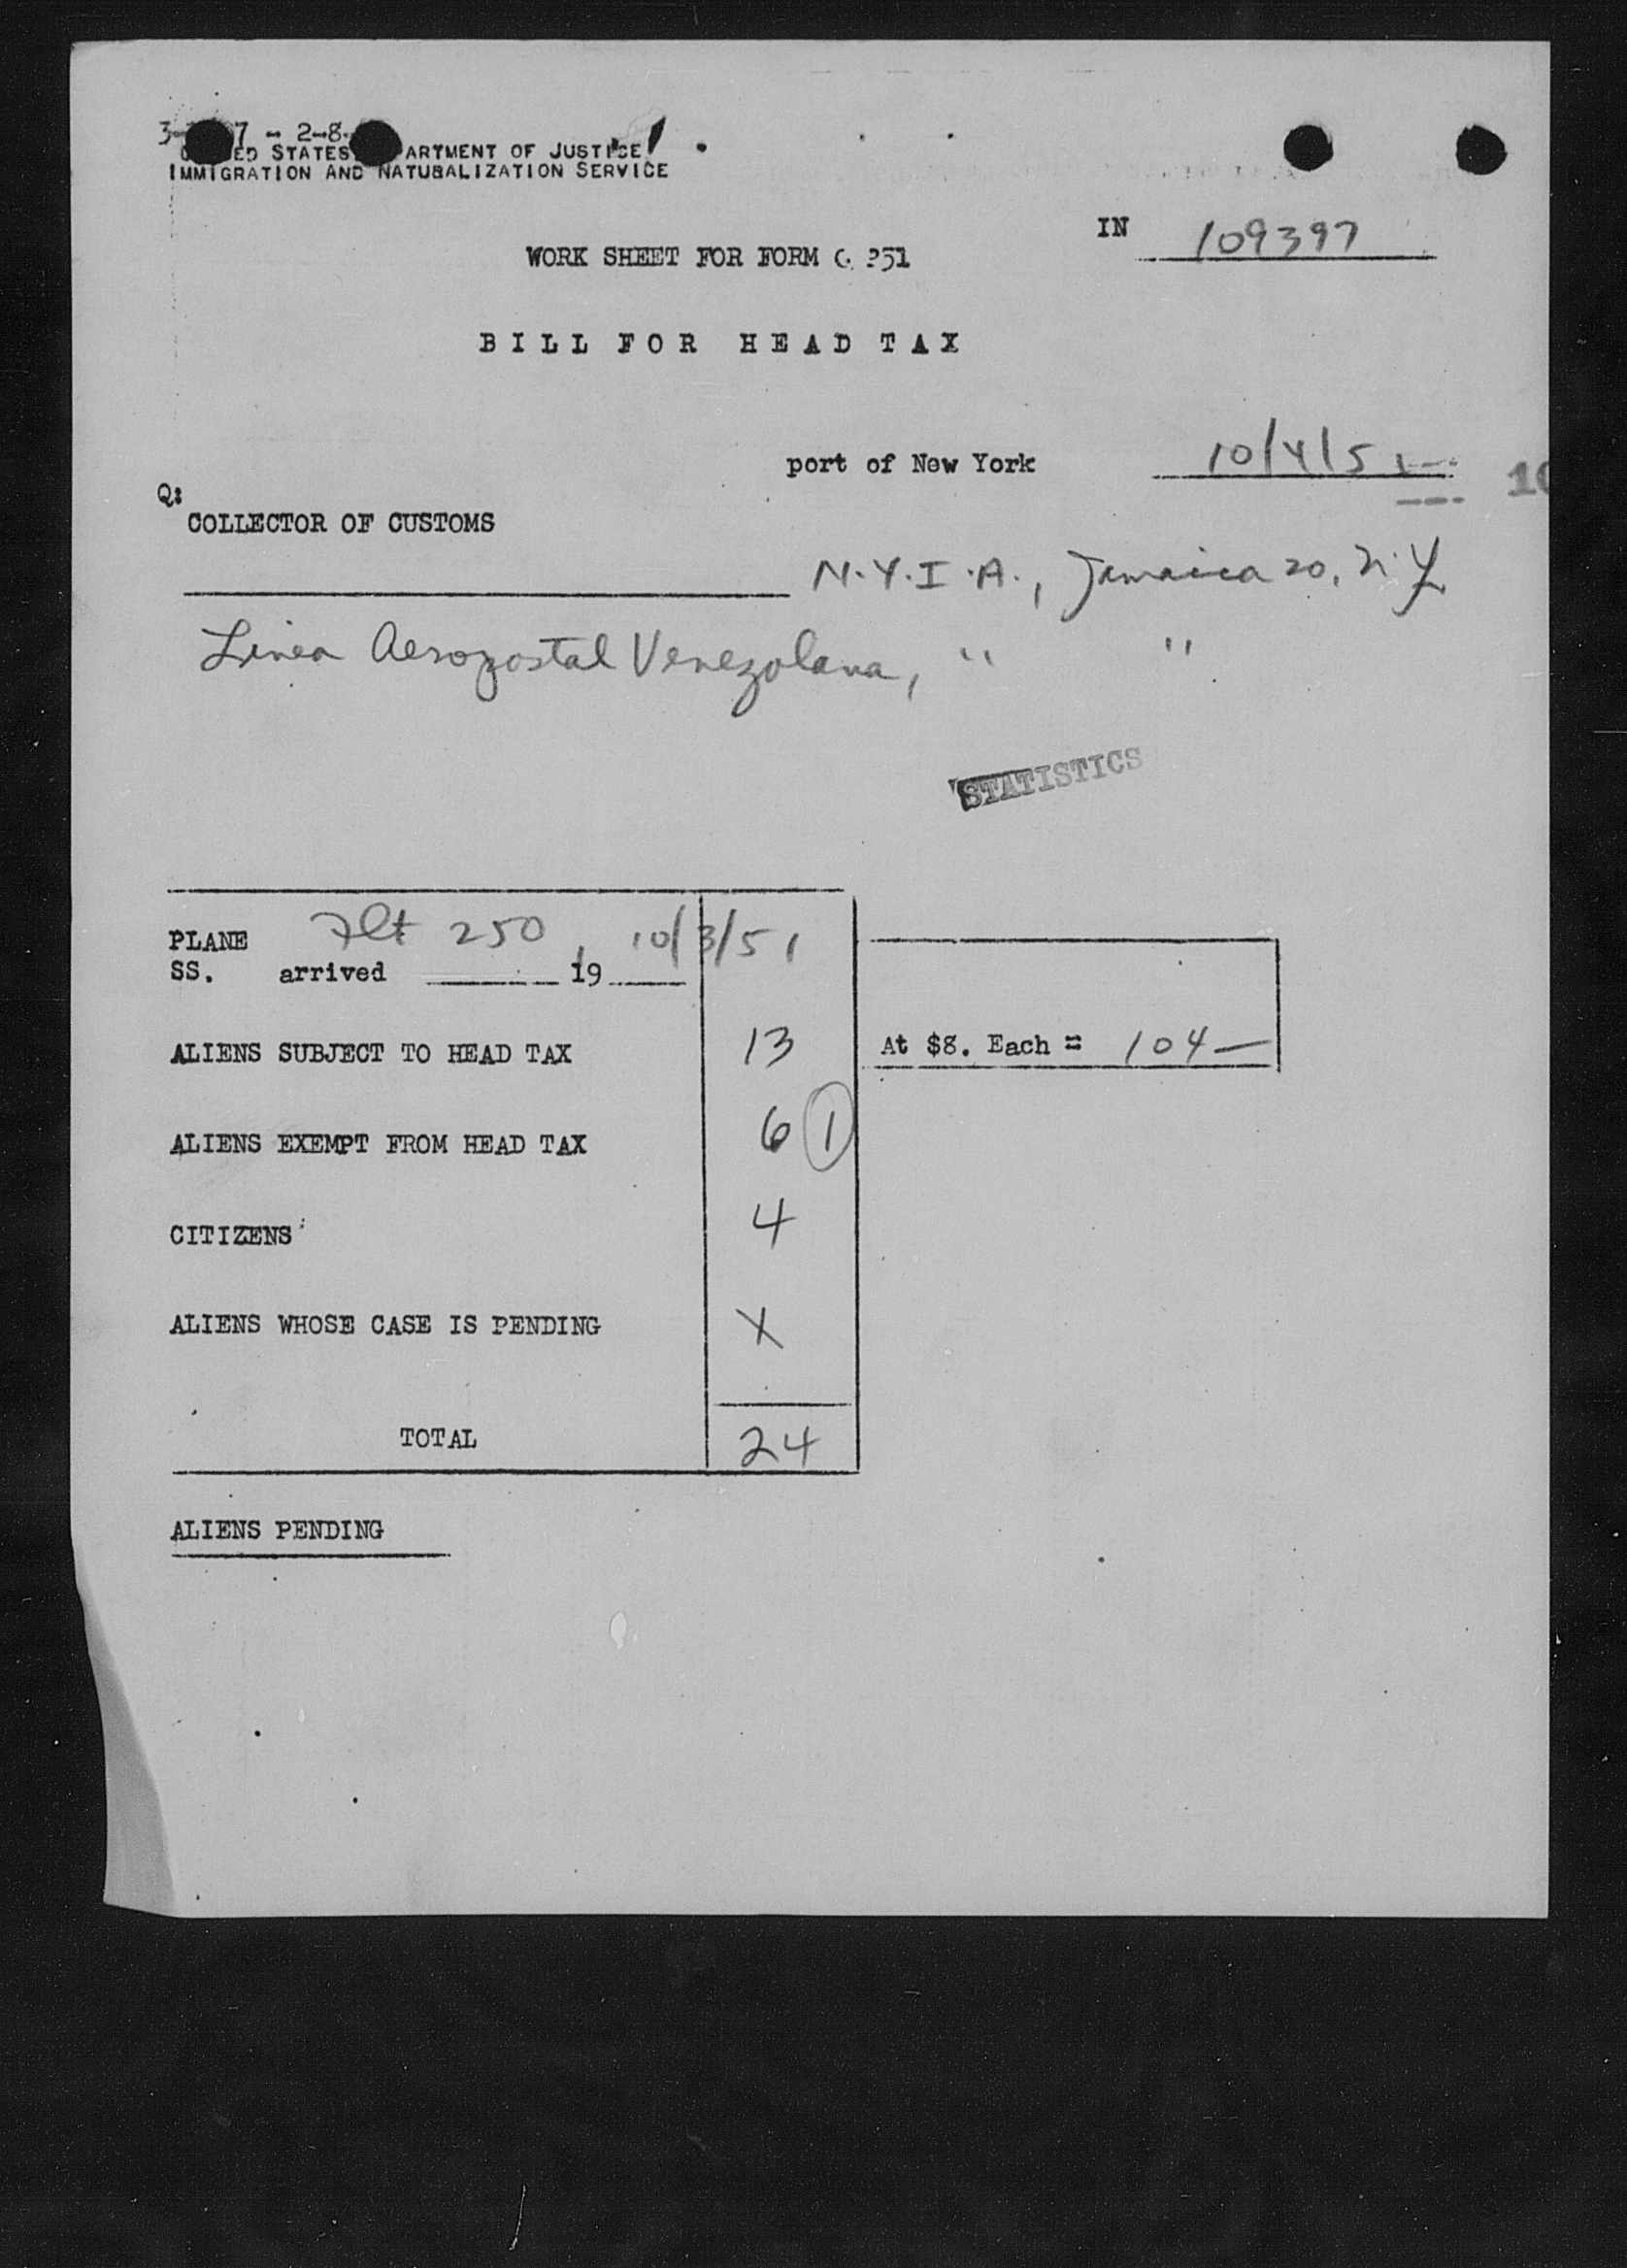 7 - 2-8
ED STATES ARTMENT OF JUSTICE
IMMIGRATION AND NATURALIZATION SERVICE
IN 109397
WORK SHEET FOR FORM G 251
BILL FOR HEAD TAX
port of New York 10/4/51
10
Q:
COLLECTOR OF CUSTOMS
N.Y.I.A., Jamaica 20, N.Y.
Linea Aeropostal Venezolana, " "
STATISTICS
PLANE Flt 250, 10/3/51
SS. arrived 19
ALIENS SUBJECT TO HEAD TAX 13 At $8. Each = 104—
ALIENS EXEMPT FROM HEAD TAX 6 1
CITIZENS 4
ALIENS WHOSE CASE IS PENDING X
TOTAL 24
ALIENS PENDING